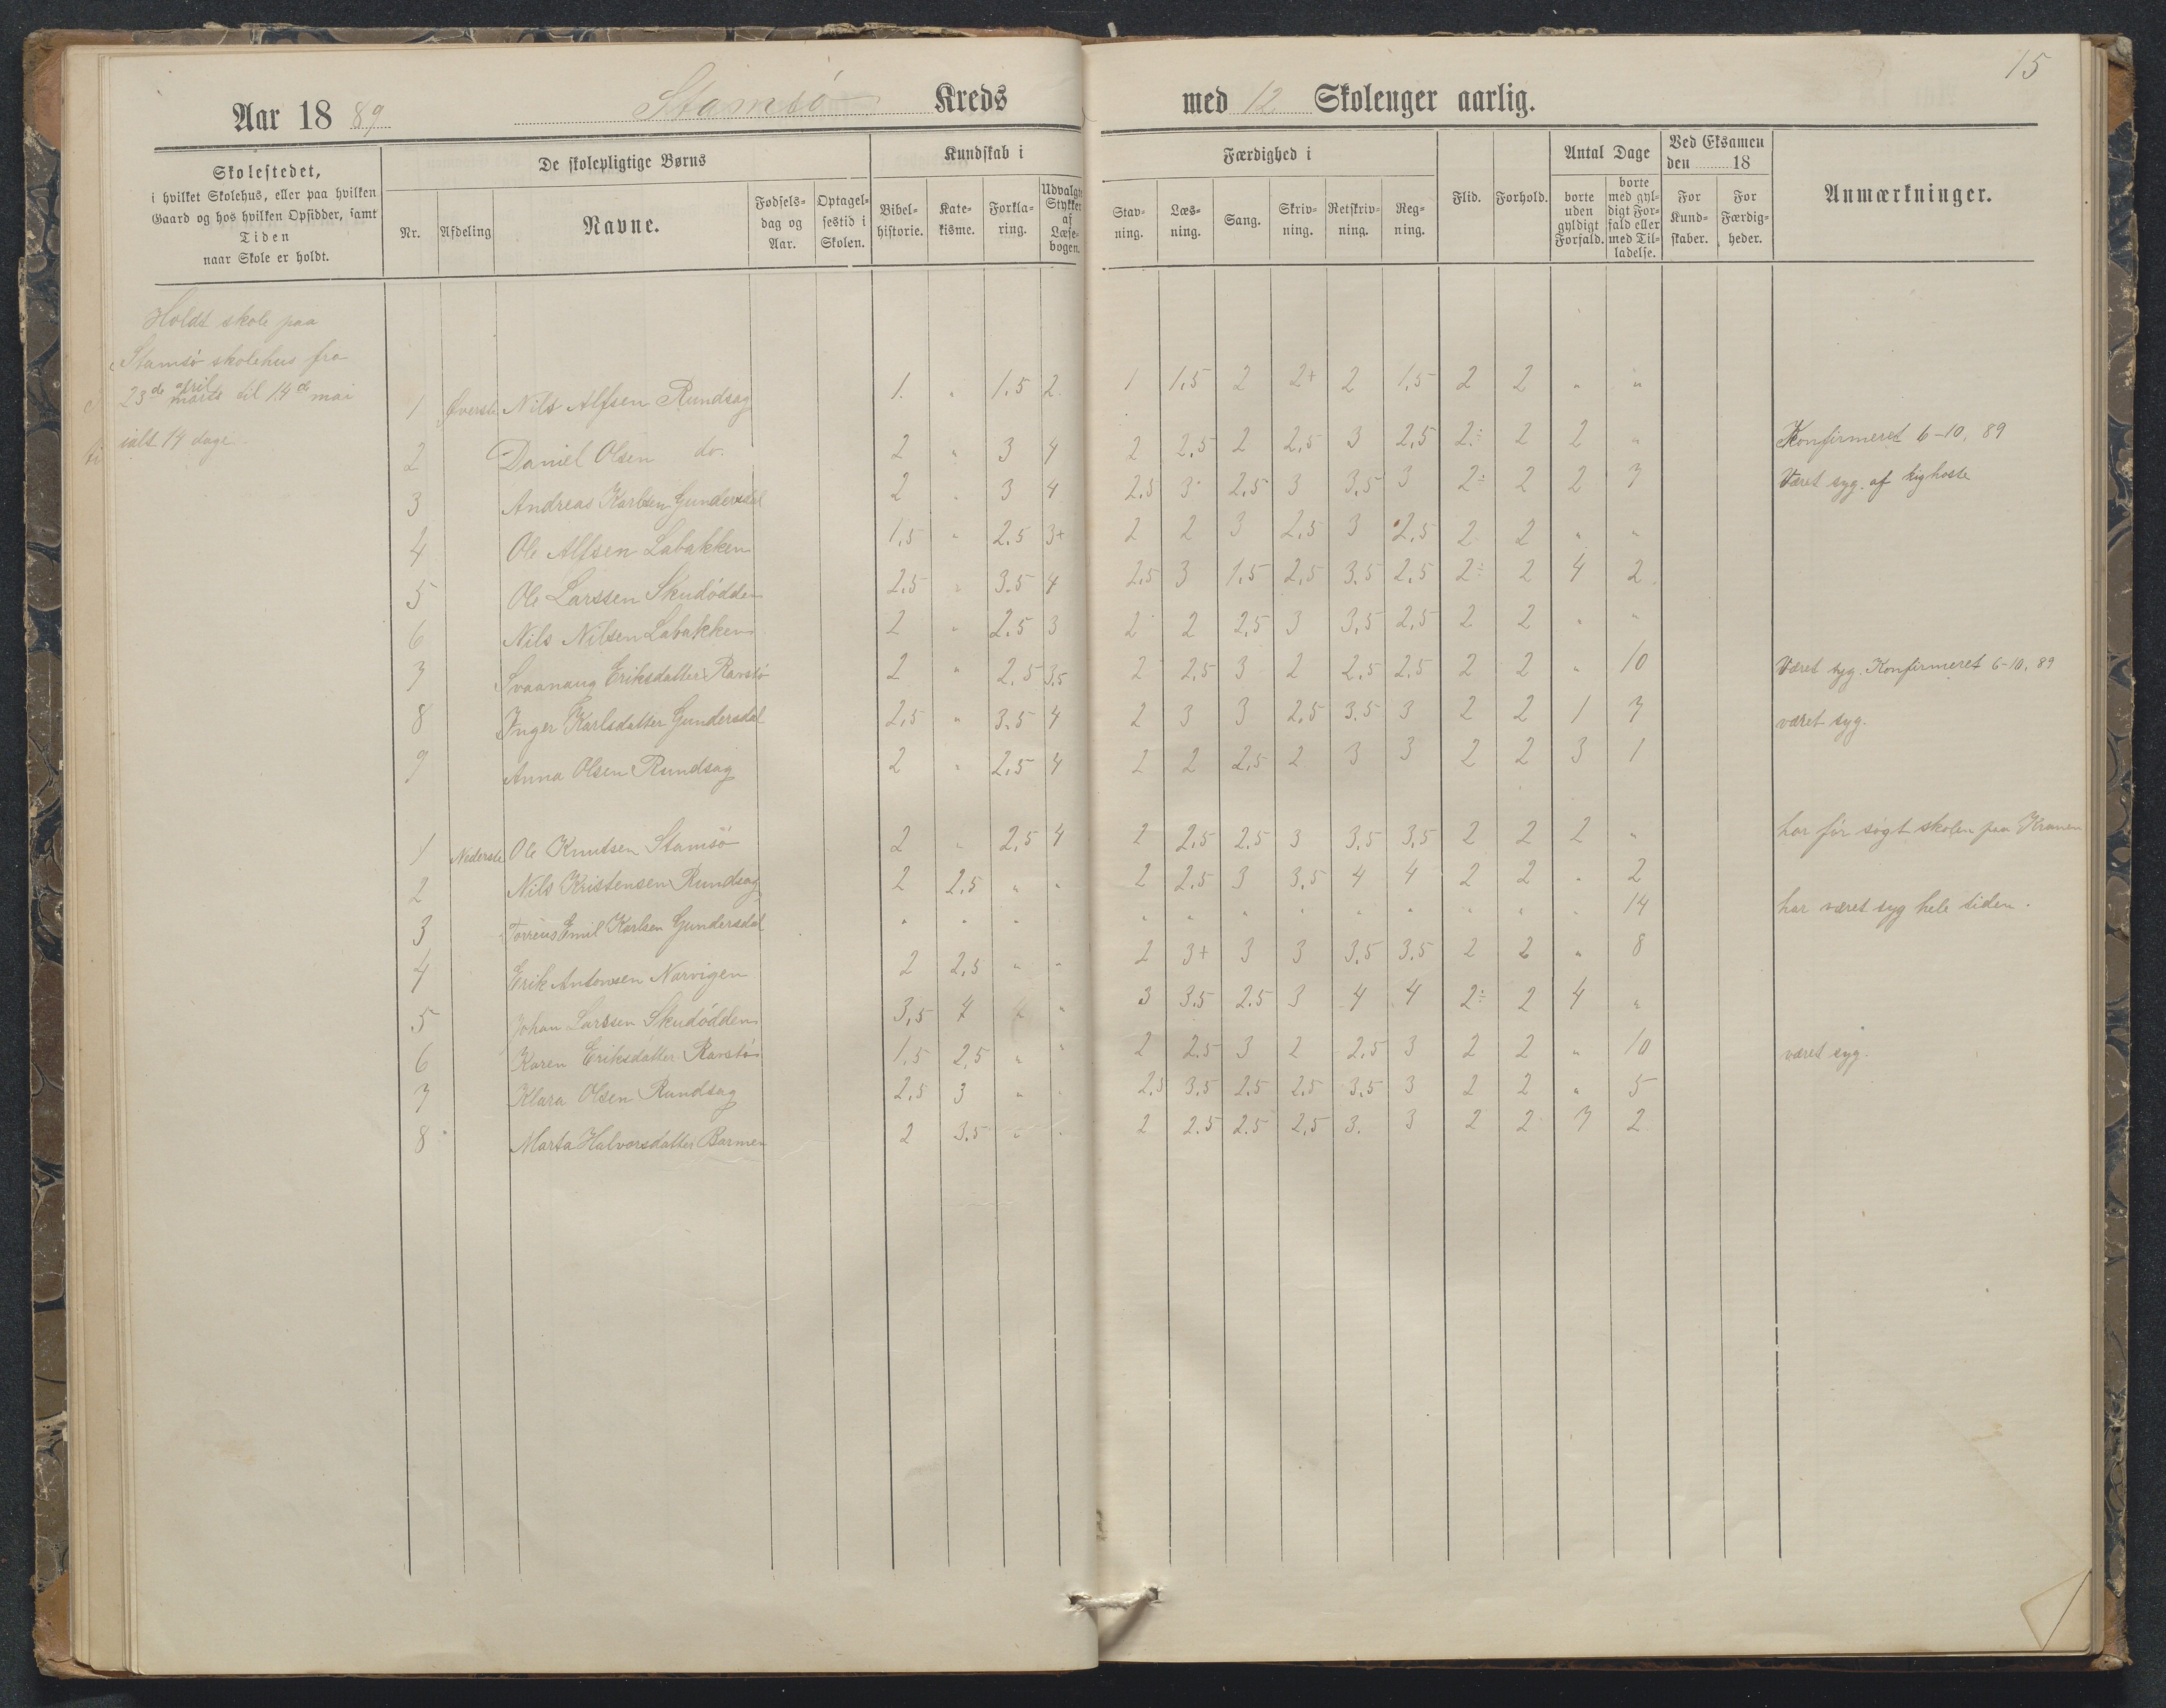 15
Aar 1889 Stamsö Kreds med 12 Skoleuger aarlig.
Skolestedet,
i hvilket Skolehus, eller paa hvilken
Gaard og hos hvilken Opsidder, samt
Tiden
naar Skole er holdt.
De skolepligtige Børns
Nr. Afdeling Navne. Fødselsdag og Aar. Optagelsestid i Skolen.
Kundskab i
Bibelhistorie. Katekisme. Forklaring. Udvalgte Stykker af Læsebogen.
Færdighed i
Stavning. Læsning. Sang. Skrivning. Retskrivning. Regning.
Flid. Forhold.
Antal Dage
borte uden gyldigt Forfald. borte med gyldigt Forfald eller med Tilladelse.
Ved Eksamen den 18
For Kundskaber. For Færdigheder.
Anmærkninger.
Holdt skole paa
Stamsö skolehus fra
23de april marts til 14de mai
ialt 14 dage.
1 Øverste Nils Alfsen Rundsag 1. " 1.5 2. 1 1,5 2 2+ 2 1,5 2 2 " "
2 Daniel Olsen do. 2 " 3 4 2 2,5 2 2,5 3 2,5 2÷ 2 2 " Konfirmeret 6-10, 89
3 Andreas Karlsen Gundersdal 2 " 3 4 2,5 3 2,5 3 3,5 3 2÷ 2 2 7 Været syg af kighoste
4 Ole Alfsen Labakken 1,5 " 2.5 3+ 2 2 3 2,5 3 2,5 2 2 " "
5 Ole Larssen Skudödden 2,5 " 3.5 4 2,5 3 1,5 2,5 3.5 2,5 2÷ 2 4 2
6 Nils Nilsen Labakken 2 " 2.5 3 2 2 2,5 3 3,5 2,5 2 2 " "
7 Svaanaug Eriksdatter Ravstö 2 " 2,5 3,5 2 2,5 3 2 2,5 2,5 2 2 " 10 Været syg. Konfirmeret 6-10, 89
8 Inger Karlsdatter Gundersdal 2,5 " 3.5 4 2 3 3 2,5 3.5 3 2 2 1 7 været syg.
9 Anna Olsen Rundsag 2 " 2,5 4 2 2 2,5 2 3 3 2 2 3 1
1 Nederste Ole Knutsen Stamsö 2 " 2,5 4 2 2,5 2.5 3 3,5 3,5 2 2 2 " har för sögt skolen paa
2 Nils Kristensen Rundsag 2 2,5 " " 2 2,5 3 3,5 4 4 2 2 " 2
3 Emil Karlsen Gundersdal " " " " " " " " " " " " 14 har været syg hele tiden.
4 Erik Antonsen Narvigen 2 2,5 " " 2 3+ 3 3 3,5 3.5 2 2 " 8
5 Johan Larssen Skudödden 3,5 4 " 3 3.5 2.5 3 4 4 2÷ 2 4 "
6 Karen Eriksdatter Ravstö 1,5 2,5 " " 2 2.5 3 2 2,5 3 2 2 " 10 været syg.
7 Klara Olsen Rundsag 2,5 3 " " 2,5 3,5 2,5 2,5 3,5 3 2 2 " 5
8 Marta Halvorsdatter Barmen 2 3.5 " " 2 2.5 2.5 2,5 3. 3 2 2 7 2